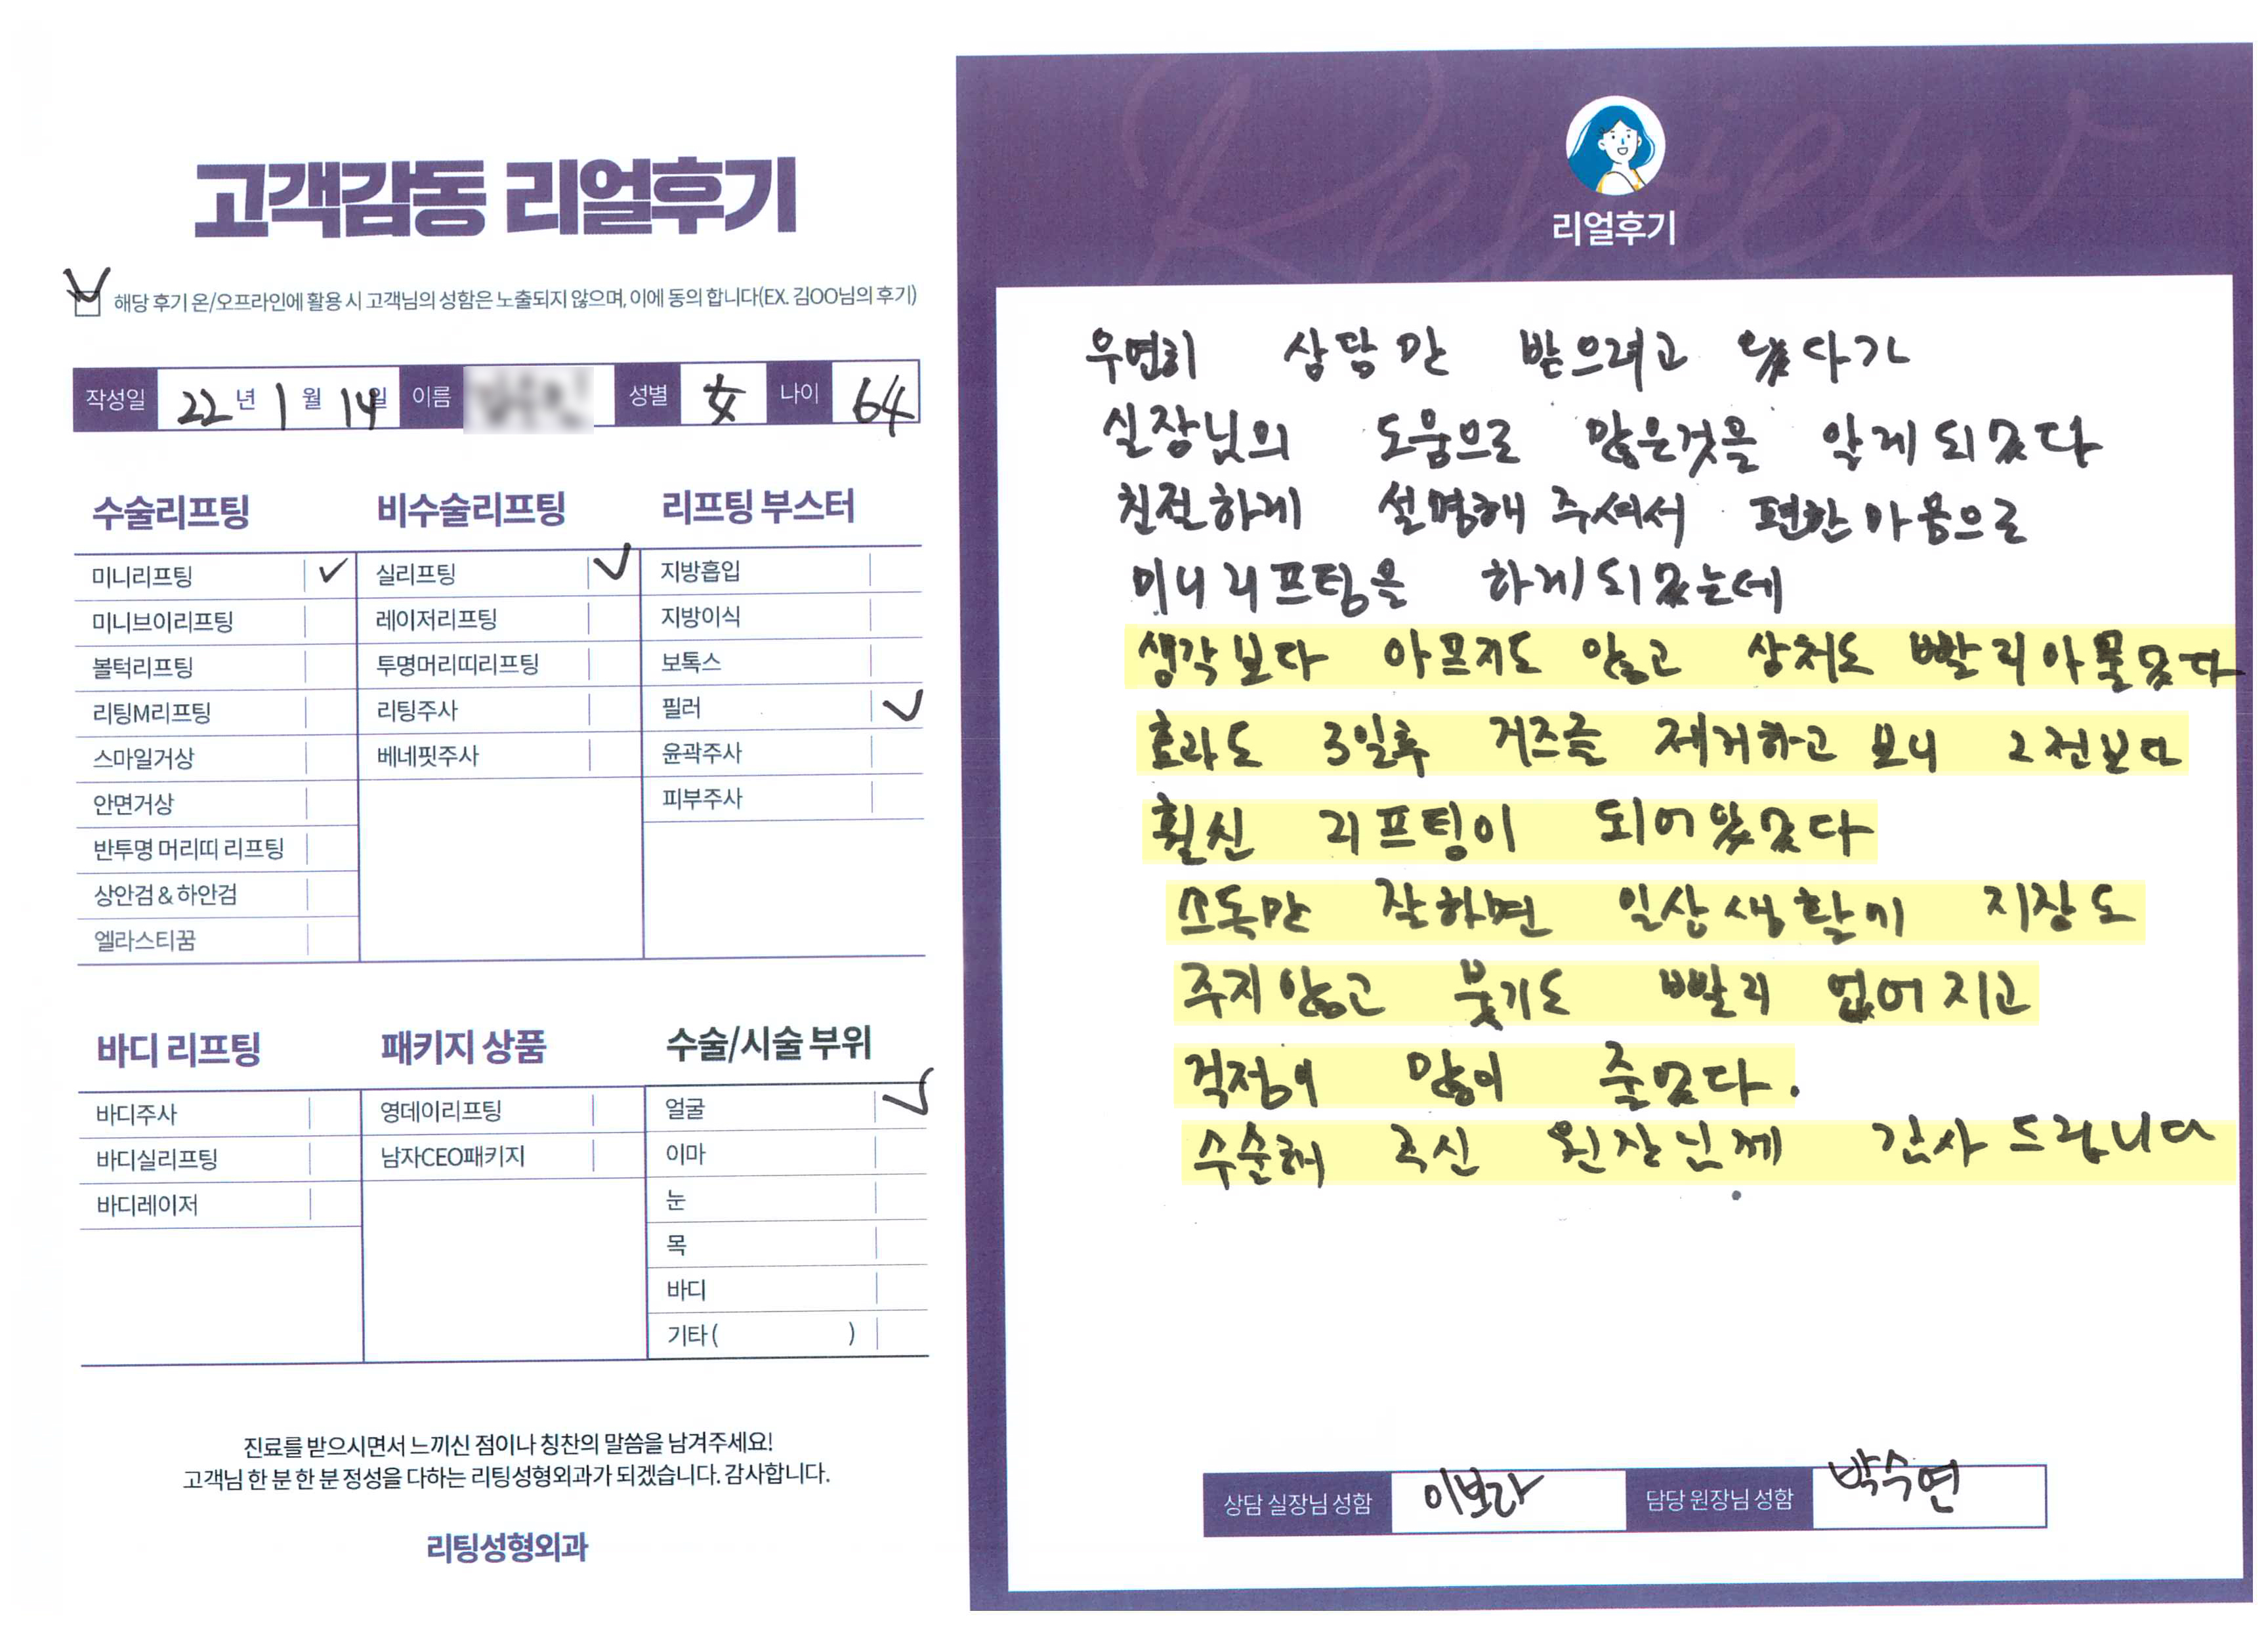 고객감동 리얼후기
해당 후기 온/오프라인에 활용 시 고객님의 성함은 노출되지 않으며, 이에 동의 합니다(EX. 김OO님의 후기)
작성일 22년 1월 14일 이름 성별 女 나이 64
수술리프팅 비수술리프팅 리프팅 부스터
미니리프팅 ✓ 실리프팅 ✓ 지방흡입
미니브이리프팅 레이저리프팅 지방이식
볼턱리프팅 투명머리띠리프팅 보톡스
리팅M리프팅 리팅주사 필러 ✓
스마일거상 베네핏주사 윤곽주사
안면거상 피부주사
반투명 머리띠 리프팅
상안검 & 하안검
엘라스티꿈
바디 리프팅 패키지 상품 수술/시술 부위
바디주사 영데이리프팅 얼굴 ✓
바디실리프팅 남자CEO패키지 이마
바디레이저 눈
목
바디
기타 ( )
진료를 받으시면서 느끼신 점이나 칭찬의 말씀을 남겨주세요!
고객님 한 분 한 분 정성을 다하는 리팅성형외과가 되겠습니다. 감사합니다.
리팅성형외과
Review
리얼후기
우연히 상담만 받으려고 왔다가
실장님의 도움으로 많은것을 알게되었다
친절하게 설명해 주셔서 편한마음으로
미니리프팅을 하게되었는데
생각보다 아프지도 않고 상처도 빨리아물었다
효과도 3일후 거즈를 제거하고 보니 2전보다
훨신 리프팅이 되어있었다
소독만 잘하면 일상생활에 지장도
주지않고 붓기도 빨리 없어지고
걱정이 많이 줄었다.
수술해 주신 원장님께 감사드립니다
상담 실장님 성함 이보라 담당 원장님 성함 박수연